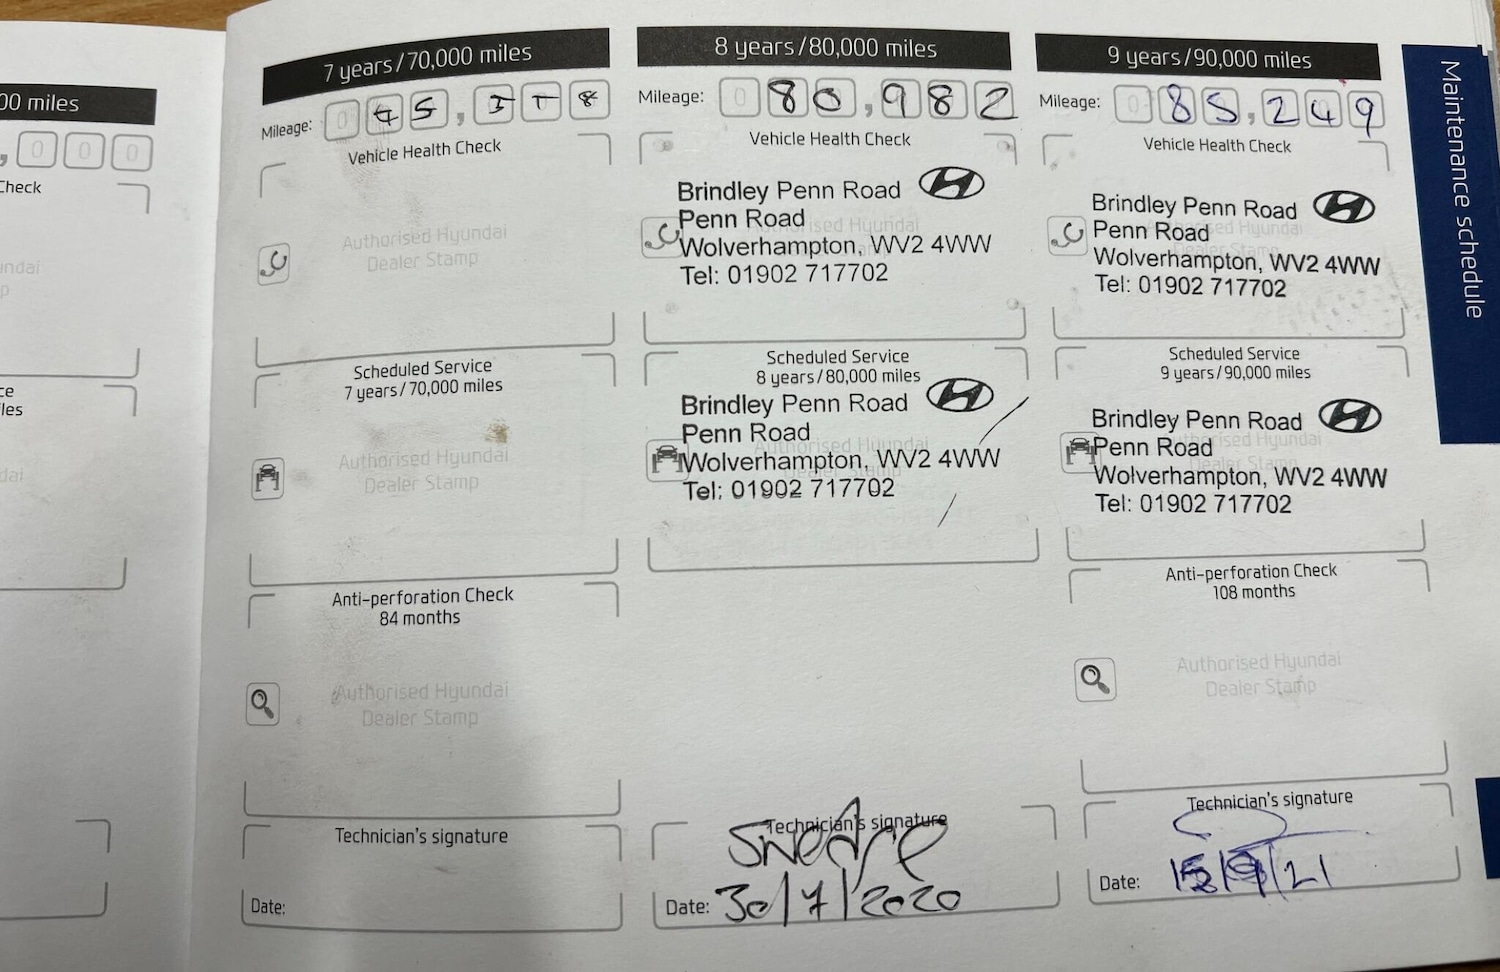 00 miles
, 0 0 0
Check
undai
p
ce
les
dai
7 years/70,000 miles
Mileage:
Vehicle Health Check
Authorised Hyundai
Dealer Stamp
Scheduled Service
7 years/70,000 miles
Authorised Hyundai
Dealer Stamp
Anti-perforation Check
84 months
Authorised Hyundai
Dealer Stamp
Technician's signature
Date:
8 years/80,000 miles
Mileage: 0 80,982
Vehicle Health Check
Brindley Penn Road
Penn Road
Wolverhampton, WV2 4WW
Tel: 01902 717702
Scheduled Service
8 years/80,000 miles
Brindley Penn Road
Penn Road
Wolverhampton, WV2 4WW
Tel: 01902 717702
Technician's signature
Date: 30/7/2020
9 years/90,000 miles
Mileage: 0 85,249
Vehicle Health Check
Brindley Penn Road
Penn Road
Wolverhampton, WV2 4WW
Tel: 01902 717702
Scheduled Service
9 years/90,000 miles
Brindley Penn Road
Penn Road
Wolverhampton, WV2 4WW
Tel: 01902 717702
Anti-perforation Check
108 months
Authorised Hyundai
Dealer Stamp
Technician's signature
Date:
Maintenance schedule